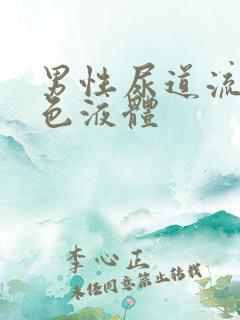 男性尿道流
色液體
李心正
未经同意禁止转载